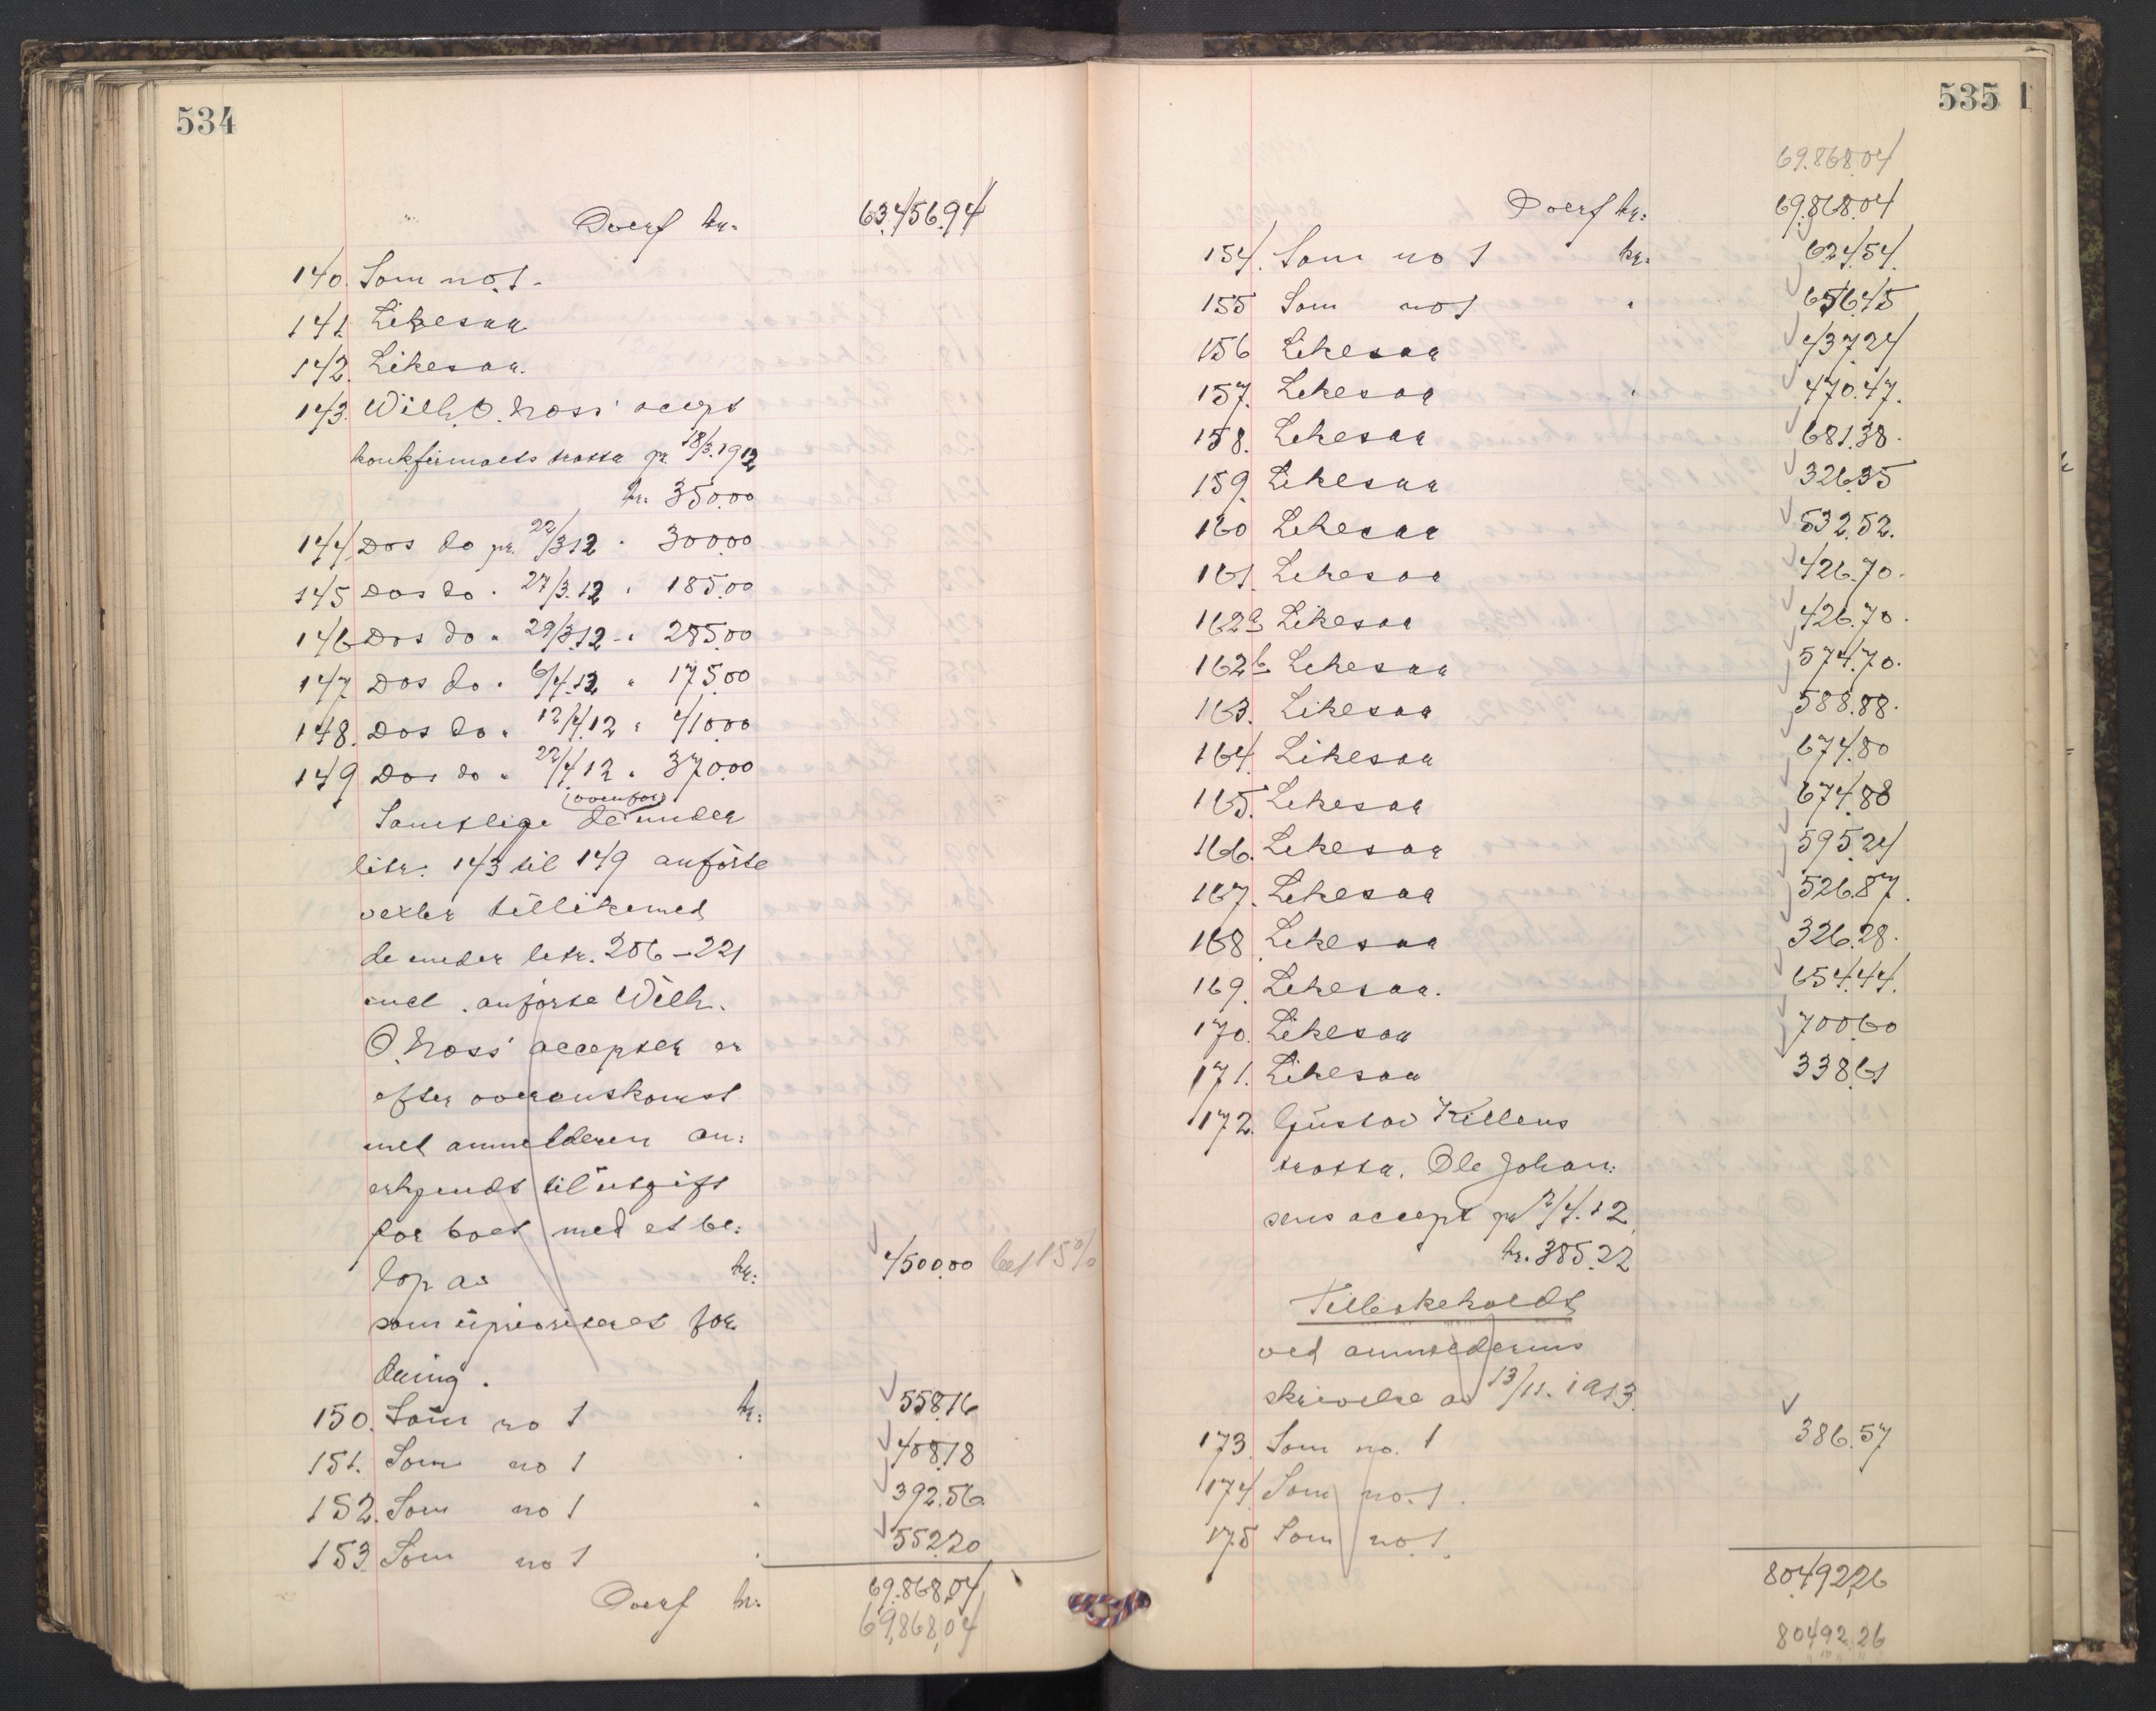 534
Overf kr. 63.456.94
140. Som no. 1.
141. Likesaa
142. Likesaa.
143. Wilh. O. Næss' accept
konkfirmaets tratta pr. 18/3.1912
kr. 350.00
144. Dos do pr. 22/3 12 " 300.00
145 Dos do " 27/3.12 " 185.00
146 Dos do " 29/3.12 " 285.00
147 Dos do " 6/4.12 " 175.00
148. Dos do " 12/4.12 " 410.00
149 Dos do " 22/4.12 " 370.00
(ovenfor)
Samtlige de under
litr. 143 til 149 anførte
vexler tillikemed
de under litr. 206-221
incl. anførte Wilh.
O. Næss' accepter er
efter overenskomst
med anmelderen an-
erkjendt til utgift
for boet med et be-
løp av kr: 4500.00 bet 15%
som uprioriteret for-
dring.
150. Som no 1 kr: 558.16
151. Som no 1 " 408.18
152. Som no 1 " 392.56
153 Som no 1 " 552.20
Overf kr. 69.868,04
69,868,04
535
69.868.04
Overf kr: 69.868.04
154. Som no 1 kr. 624.54.
155 Som no 1 " 656.45
156 Likesaa 437.24
157. Likesaa " 470.47.
158. Likesaa 681.38.
159. Likesaa 326.35
160 Likesaa 532.52.
161. Likesaa 426.70.
162a Likesaa 426.70.
162b Likesaa 574.70.
163. Likesaa 588.88.
164. Likesaa 674.80
165. Likesaa 674.88
166. Likesaa 595.24
167. Likesaa 526.87.
168. Likesaa 326.28.
169. Likesaa. 654.44.
170. Likesaa 700.60
171. Likesaa 338.61
172. Gustav Killens
tratta, Ole Johan-
sens accept pr 2/4.12
kr. 385.22
Tilbakeholdt
ved anmelderens
skrivelse av 13/11. 1913.
173. Som no. 1 386.57
174 Som no. 1.
175 Som no. 1.
80.492,26
80492,26